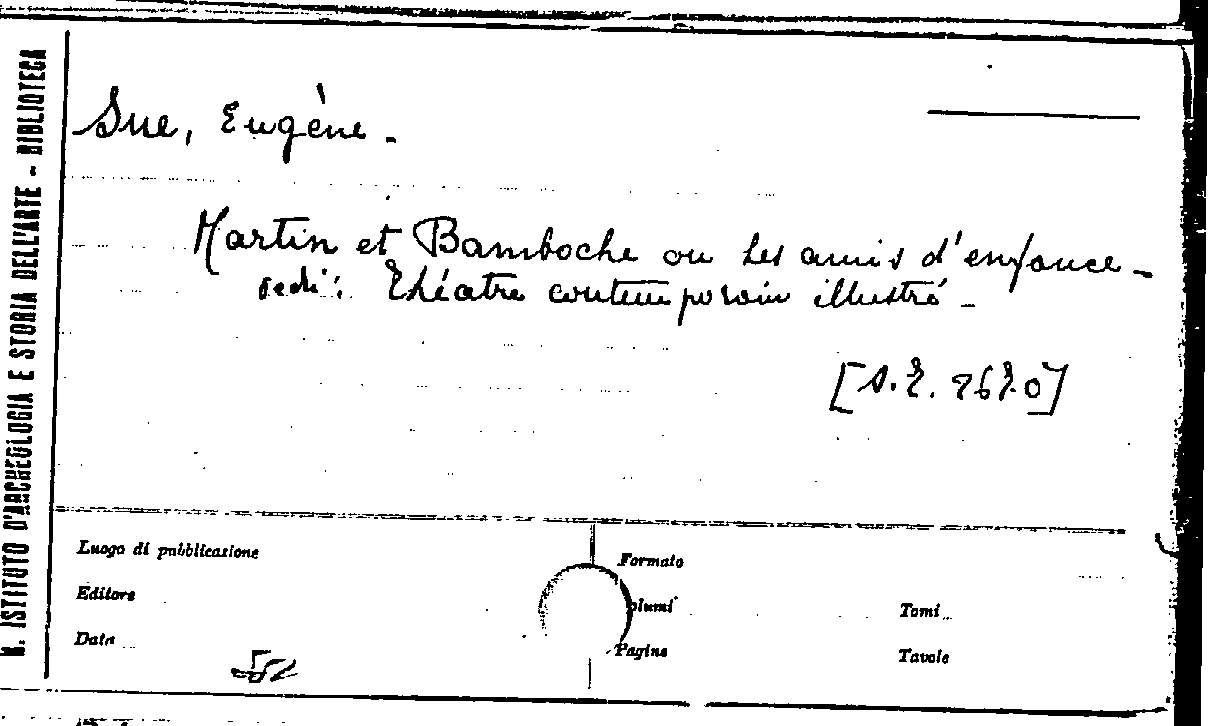 R. ISTITUTO D'ARCHEOLOGIA E STORIA DELL'ARTE - BIBLIOTECA
Sue, Eugène.
Martin et Bamboche ou Les amis d'enfance -
vedi: Théatre contemporain illustré -
Luogo di pubblicazione
Formato
Editore
Volumi
Tomi
Data
Pagine
Tavole